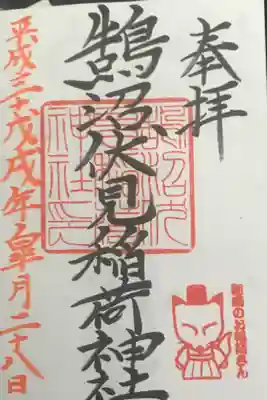 奉拝
鵠沼伏見稲荷神社
平成三十戊戌年皐月二十八日
鵠沼のお稲荷さん